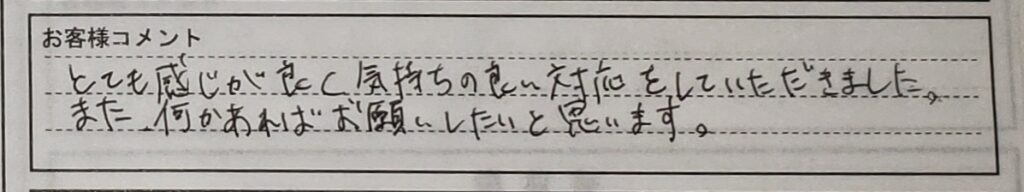 お客様コメント
とても感じが良く気持ちの良い対応をしていただきました。
また、何かあればお願いしたいと思います。